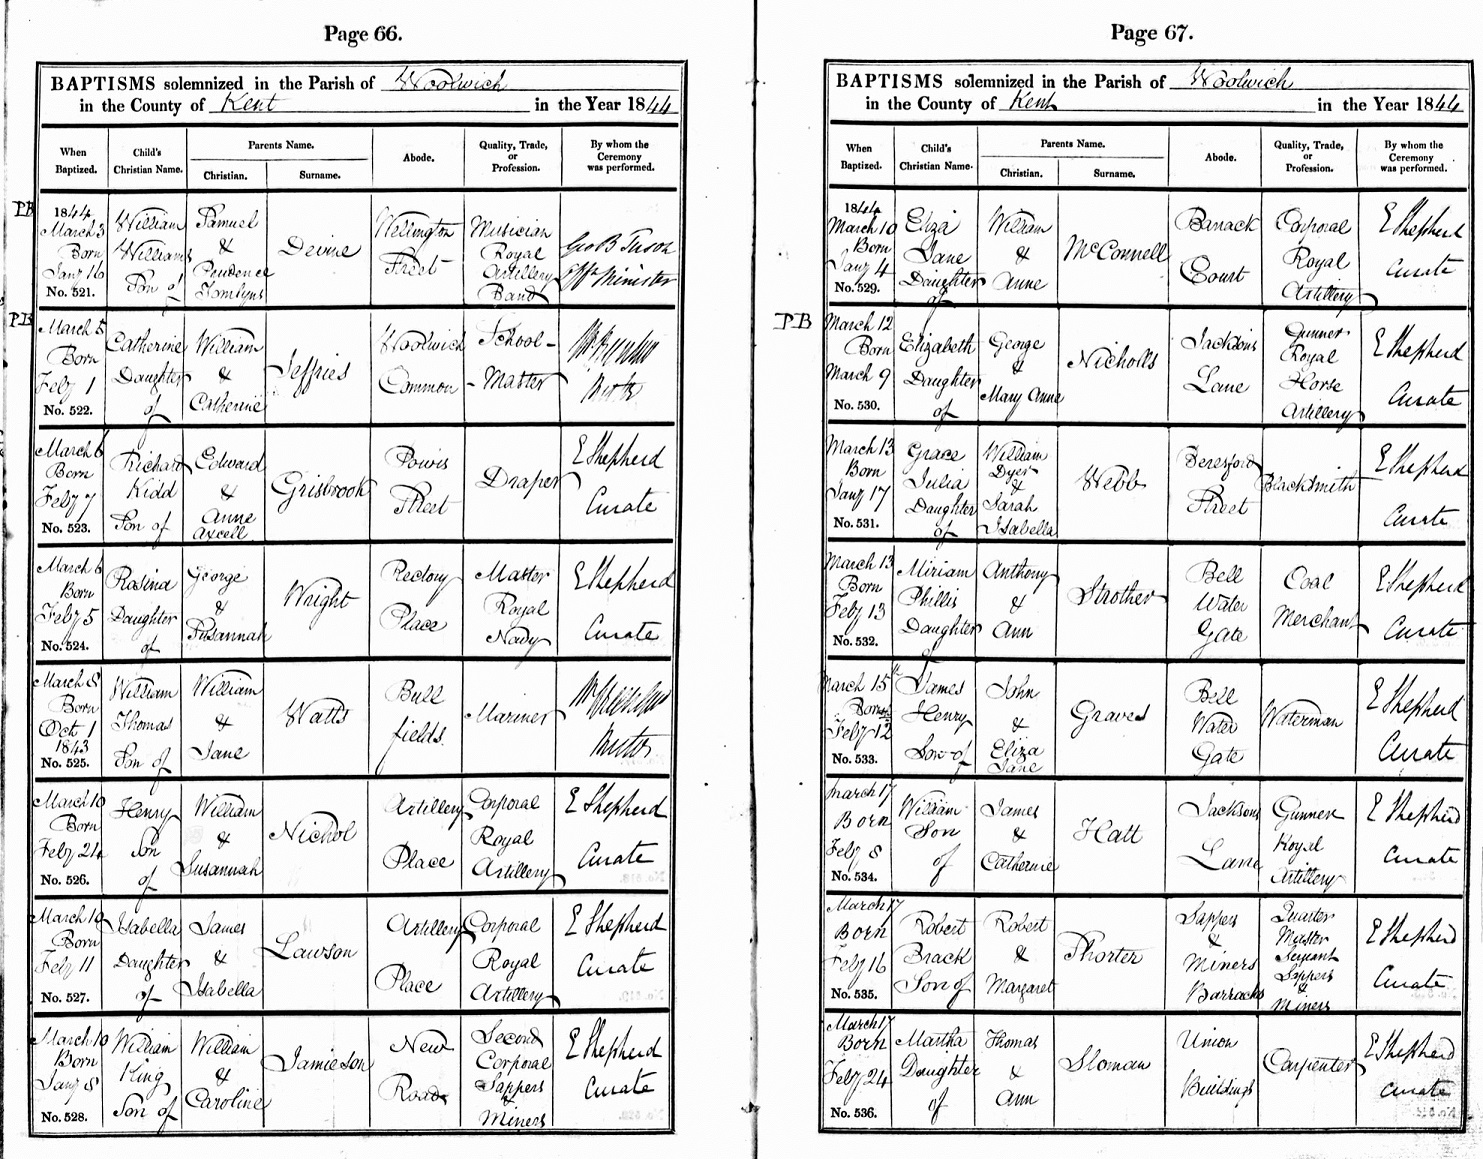 Page 66.
BAPTISMS solemnized in the Parish of Woolwich
in the County of Kent in the Year 1844
When Baptized.
Child's Christian Name.
Parents Name.
Christian.
Surname.
Abode.
Quality, Trade, or Profession.
By whom the Ceremony was performed.
P.B
1844 March 3 Born Jany 16 No. 521.
William Williams Son of
Samuel & Prudence Tomlyns
Devine
Wellington Street
Musician Royal Artillery Band
Geo B Tuson Offg Minister
P.B
March 5 Born Feby 1 No. 522.
Catherine Daughter of
William & Catherine
Jeffries
Woolwich Common
School-Master
March 6 Born Feby 7 No. 523.
Richard Kidd Son of
Edward & Anne Axcell
Grisbrook
Powis Street
Draper
E Shepherd Curate
March 6 Born Feby 5 No. 524.
Rosina Daughter of
George & Susannah
Wright
Rectory Place
Master Royal Navy
E Shepherd Curate
March 8 Born Oct 1 1843 No. 525.
William Thomas Son of
William & Jane
Watts
Bull fields.
Mariner
March 10 Born Feby 24 No. 526.
Henry Son of
William & Susannah
Nichol
Artillery Place
Corporal Royal Artillery
E Shepherd Curate
March 10 Born Feby 11 No. 527.
Isabella Daughter of
James & Isabella
Lawson
Artillery Place
Corporal Royal Artillery
E Shepherd Curate
March 10 Born Jany 8 No. 528.
William King Son of
William & Caroline
Jamieson
New Road
Second Corporal Sappers & Miners
E Shepherd Curate
Page 67.
BAPTISMS solemnized in the Parish of Woolwich
in the County of Kent in the Year 1844
When Baptized.
Child's Christian Name.
Parents Name.
Christian.
Surname.
Abode.
Quality, Trade, or Profession.
By whom the Ceremony was performed.
1844 March 10 Born Jany 4 No. 529.
Eliza Jane Daughter of
William & Anne
McConnell
Barrack Court
Corporal Royal Artillery
E Shepherd Curate
P B
March 12 Born March 9 No. 530.
Elizabeth Daughter of
George & Mary Anne
Nicholls
Jacksons Lane
Gunner Royal Horse Artillery
E Shepherd Curate
March 13 Born Jany 17 No. 531.
Grace Julia Daughter of
William Dyer & Sarah Isabella
Webb
Beresford Street
Blacksmith
E Shepherd Curate
March 13 Born Feby 13 No. 532.
Miriam Phillis Daughter of
Anthony & Ann
Strother
Bell Water Gate
Coal Merchant
E Shepherd Curate
March 15 Born Feby 12 No. 533.
James Henry Son of
John & Eliza Jane
Graves
Bell Water Gate
Waterman
E Shepherd Curate
March 17 Born Feby 8 No. 534.
William Son of
James & Catherine
Hatt
Jacksons Lane
Gunner Royal Artillery
E Shepherd Curate
March 17 Born Feby 16 No. 535.
Robert Brack Son of
Robert & Margaret
Shorter
Sappers & Miners Barracks
Quarter Master Serjeant Sappers & Miners
E Shepherd Curate
March 17 Born Feby 24 No. 536.
Martha Daughter of
Thomas & Ann
Sloman
Union Buildings
Carpenter
E Shepherd Curate